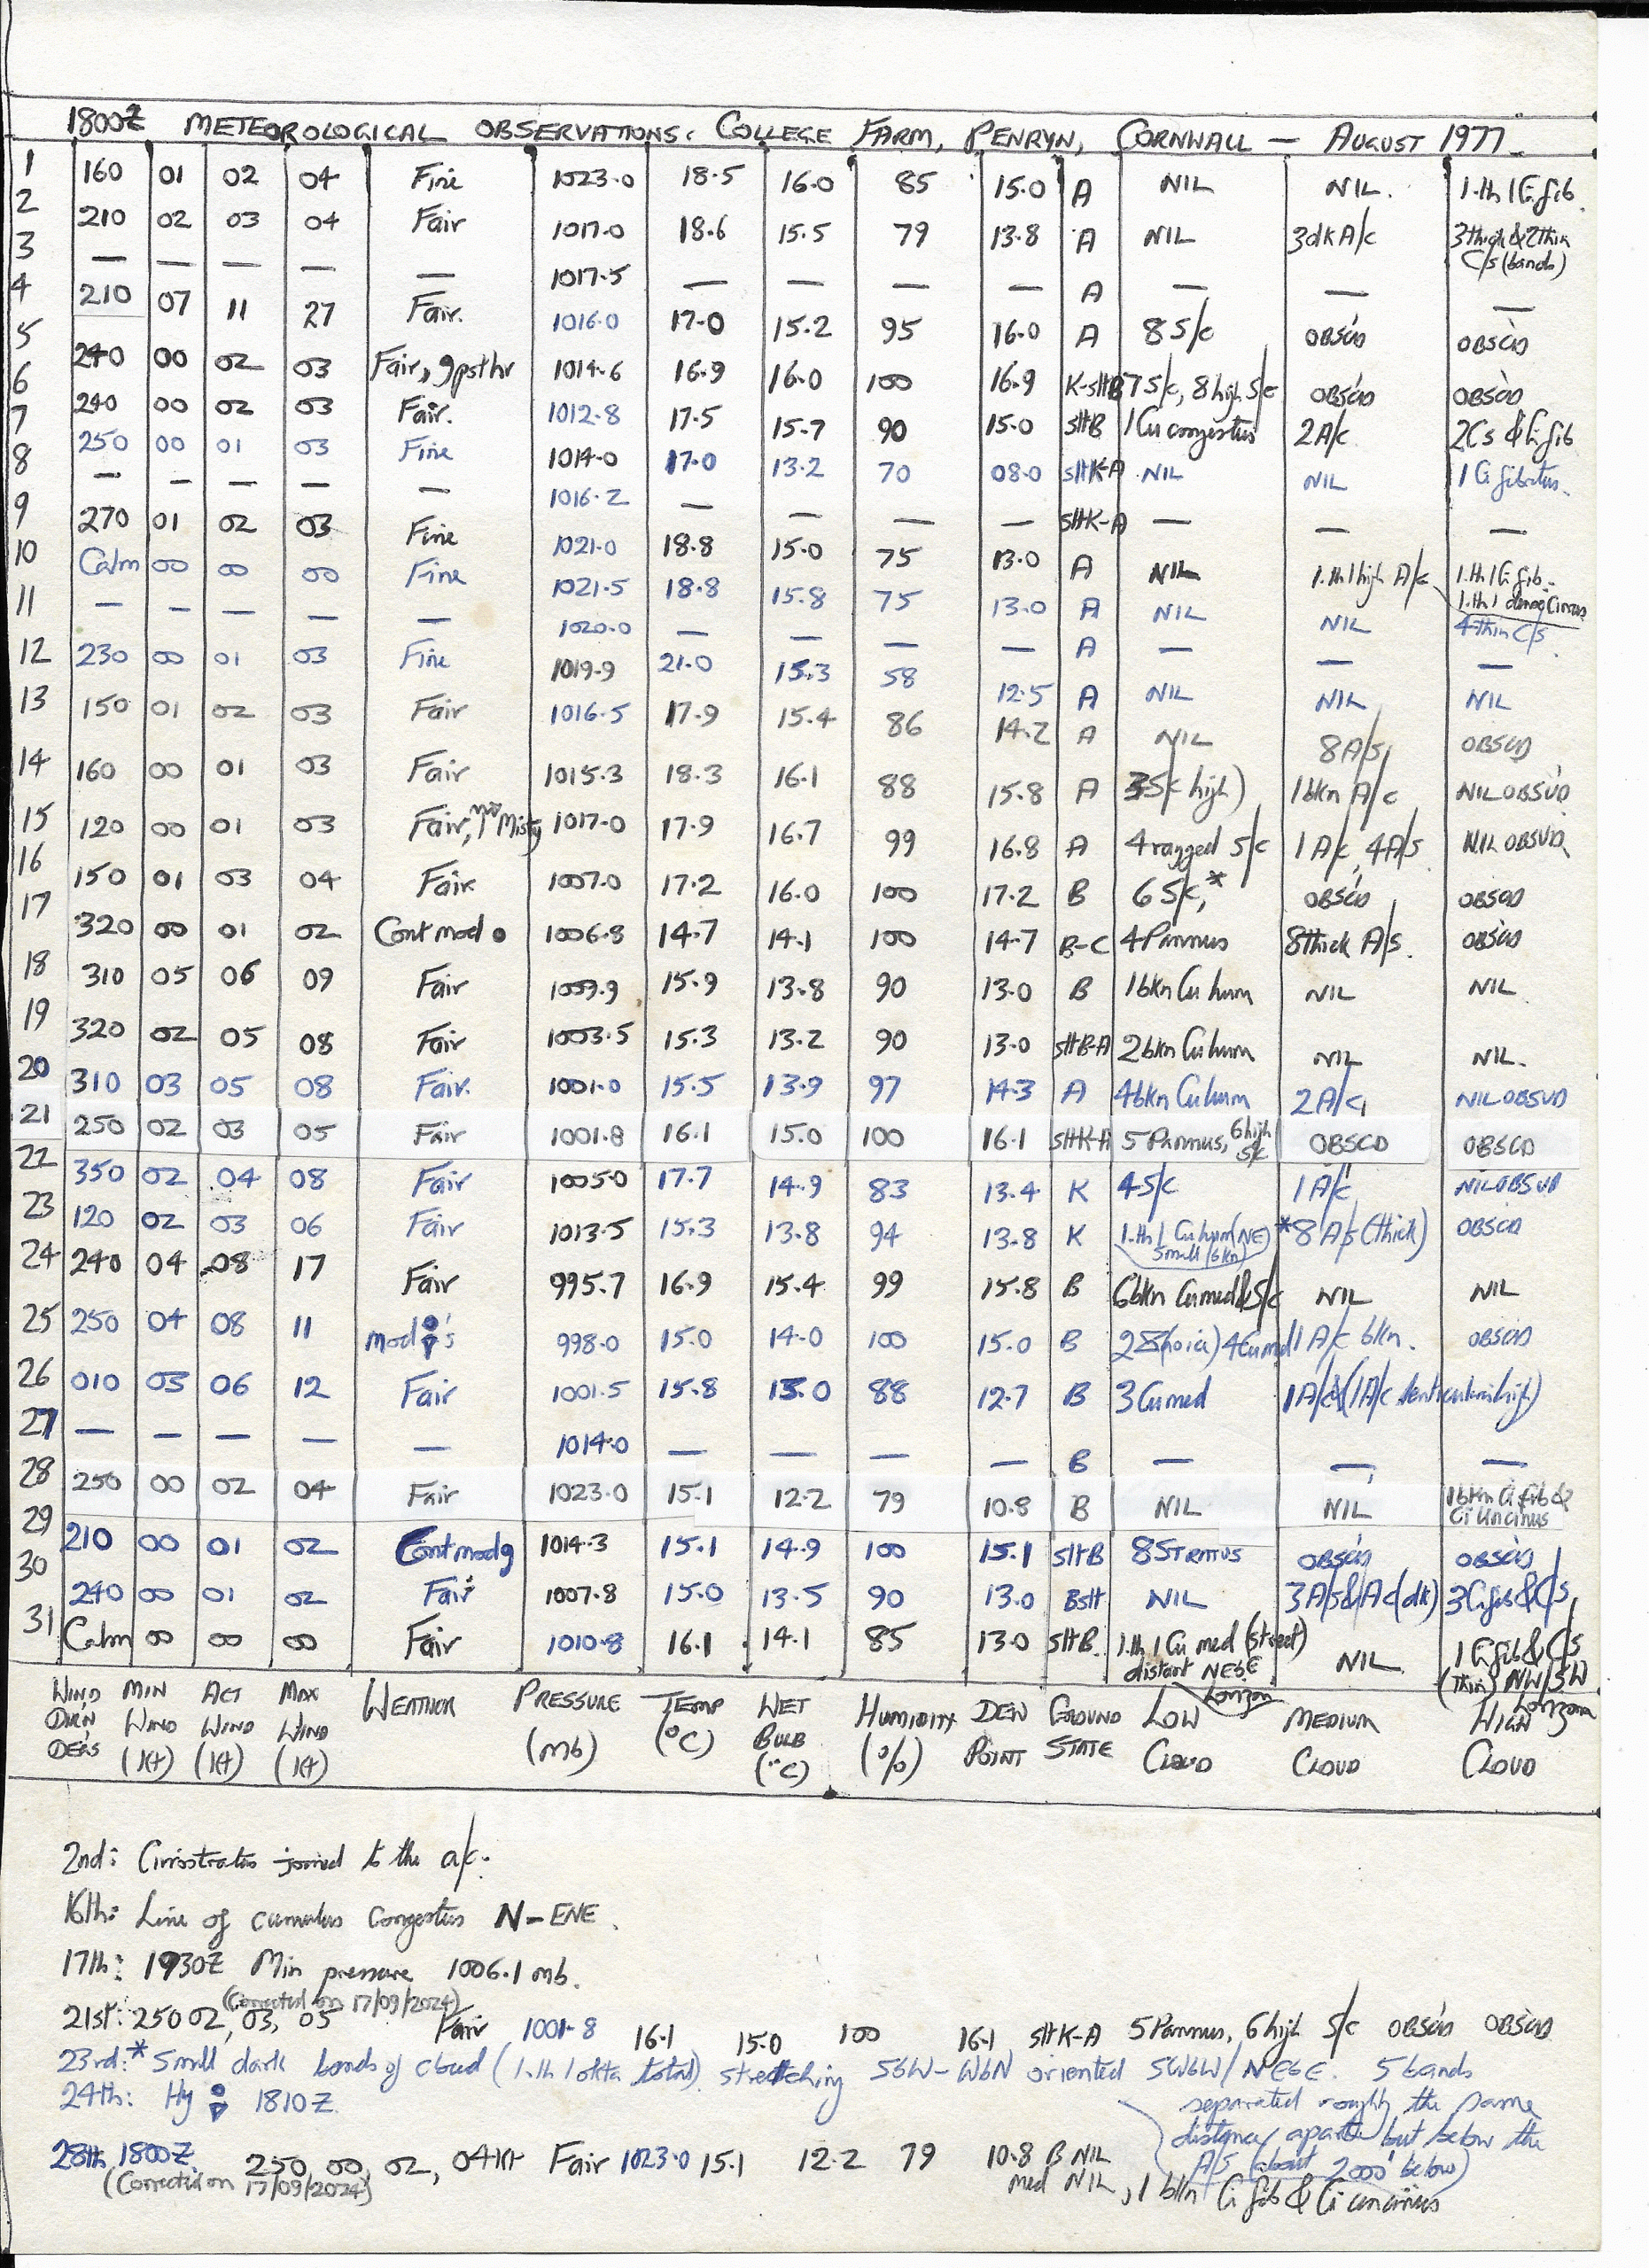 1800Z METEOROLOGICAL OBSERVATIONS: COLLEGE FARM, PENRYN, CORNWALL — AUGUST 1977
1 160 01 02 04 Fine 1023.0 18.5 16.0 85 15.0 A NIL NIL. 1.th 1 Ci fib.
2 210 02 03 04 Fair 1017.0 18.6 15.5 79 13.8 A NIL 3dk A/c 3thick & 2thin C/s (bands)
3 — — — — — 1017.5 — — — — A — — —
4 210 07 11 27 Fair. 1016.0 17.0 15.2 95 16.0 A 8 S/c OBSC'D OBSC'D
5 240 00 02 03 Fair, 9psthr 1014.6 16.9 16.0 100 16.9 K-SHB 7 S/c, 8 high S/c OBSC'D OBSC'D
6 240 00 02 03 Fair. 1012.8 17.5 15.7 90 15.0 SHB 1 Cu congestus 2 A/c 2Cs & Ci fib
7 250 00 01 03 Fine 1014.0 17.0 13.2 70 08.0 SHK-A NIL NIL 1 Ci fibratus.
8 — — — — — 1016.2 — — — — SHK-A — — —
9 270 01 02 03 Fine 1021.0 18.8 15.0 75 13.0 A NIL 1.th 1 high A/c 1.th 1 Ci fib. 1.th 1 dense Cirrus
10 Calm 00 00 00 Fine 1021.5 18.8 15.8 75 13.0 A NIL NIL 4 thin C/s
11 — — — — — 1020.0 — — — — A — — —
12 230 00 01 03 Fine 1019.9 21.0 15.3 58 12.5 A NIL NIL NIL
13 150 01 02 03 Fair 1016.5 17.9 15.4 86 14.2 A NIL 8 A/s, OBSCD
14 160 00 01 03 Fair 1015.3 18.3 16.1 88 15.8 A 3 S/c high) 1 bkn A/c NIL OBSVD
15 120 00 01 03 Fair, Misty 1017.0 17.9 16.7 99 16.8 A 4 ragged S/c 1 A/c, 4 A/s NIL OBSVD
16 150 01 03 04 Fair 1007.0 17.2 16.0 100 17.2 B 6 S/c,* OBSC'D OBSCD
17 320 00 01 02 Cont mod ● 1006.8 14.7 14.1 100 14.7 B-C 4 Pannus 8thick A/s. OBSCD
18 310 05 06 09 Fair 1009.9 15.9 13.8 90 13.0 B 1 bkn Cu hum NIL NIL
19 320 02 05 08 Fair 1003.5 15.3 13.2 90 13.0 SHB-A 2 bkn Cu hum NIL NIL.
20 310 03 05 08 Fair. 1001.0 15.5 13.9 97 14.3 A 4 bkn Cu hum 2 A/c, NIL OBSVD
21 250 02 03 05 Fair 1001.8 16.1 15.0 100 16.1 SHK-A 5 Pannus, 6 high S/c OBSCD OBSCD
22 350 02 04 08 Fair 1005.0 17.7 14.9 83 13.4 K 4 S/c 1 A/c NIL OBSVD
23 120 02 03 06 Fair 1013.5 15.3 13.8 94 13.8 K 1.th 1 Cu hum (NE) small (bkn) *8 A/s (thick) OBSCD
24 240 04 08 17 Fair 995.7 16.9 15.4 99 15.8 B 6 bkn Cu med & S/c NIL NIL
25 250 04 08 11 mod 's 998.0 15.0 14.0 100 15.0 B 4 Cu med 1 A/c bkn. OBSCD
26 010 03 06 12 Fair 1001.5 15.8 13.0 88 12.7 B 3 Cu med 1 A/c & (1 A/c lenticularis high)
27 — — — — — 1014.0 — — — — B — — —
28 250 00 02 04 Fair 1023.0 15.1 12.2 79 10.8 B NIL NIL 1 bkn Ci fib & Ci uncinus
29 210 00 01 02 Cont mod 9 1014.3 15.1 14.9 100 15.1 SHB 8 STRATUS OBSC'D OBSC'D
30 240 00 01 02 Fair 1007.8 15.0 13.5 90 13.0 BSH NIL 3 A/s & A/c (dk) 3 Ci fib & C/s,
31 Calm 00 00 00 Fair 1010.8 16.1 14.1 85 13.0 SHB. 1.th 1 Cu med (street) distant NEbE horizon NIL 1 Ci fib & C/s (thin) NW/SW horizon
WIND DIR'N DEGS MIN WIND (Kt) ACT WIND (Kt) MAX WIND (Kt) WEATHER PRESSURE (mb) TEMP (°C) WET BULB (°C) HUMIDITY (%) DEW POINT GROUND STATE LOW CLOUD MEDIUM CLOUD HIGH CLOUD
2nd: Cirrostratus joined to the a/c.
16th: Line of cumulus congestus N – ENE.
17th: 1930Z Min pressure 1006.1 mb.
(Corrected on 17/09/2024)
21st: 250 02, 03, 05 Fair 1001.8 16.1 15.0 100 16.1 SHK-A 5 Pannus, 6 high S/c OBSC'D OBSC'D
23rd: * Small dark bands of cloud (1.th 1 okta total) stretching SbW – WbN oriented SWbW/NEbE. 5 bands
separated roughly the same
distance apart but below the
A/s (about 2000' below)
24th: Hy 1810Z
28th 1800Z, 250 00, 02, 04Kt Fair 1023.0 15.1 12.2 79 10.8 B NIL
(Correction 17/09/2024) med NIL, 1 bkn Ci fib & Ci uncinus